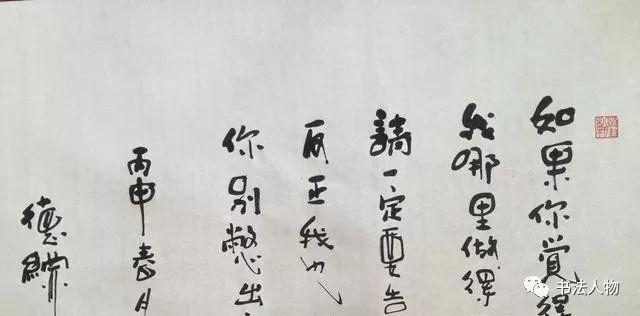 如果你覺得
我哪里做得
請一定要告
反正我也
你别憋出
丙申春月
德綱
书法人物